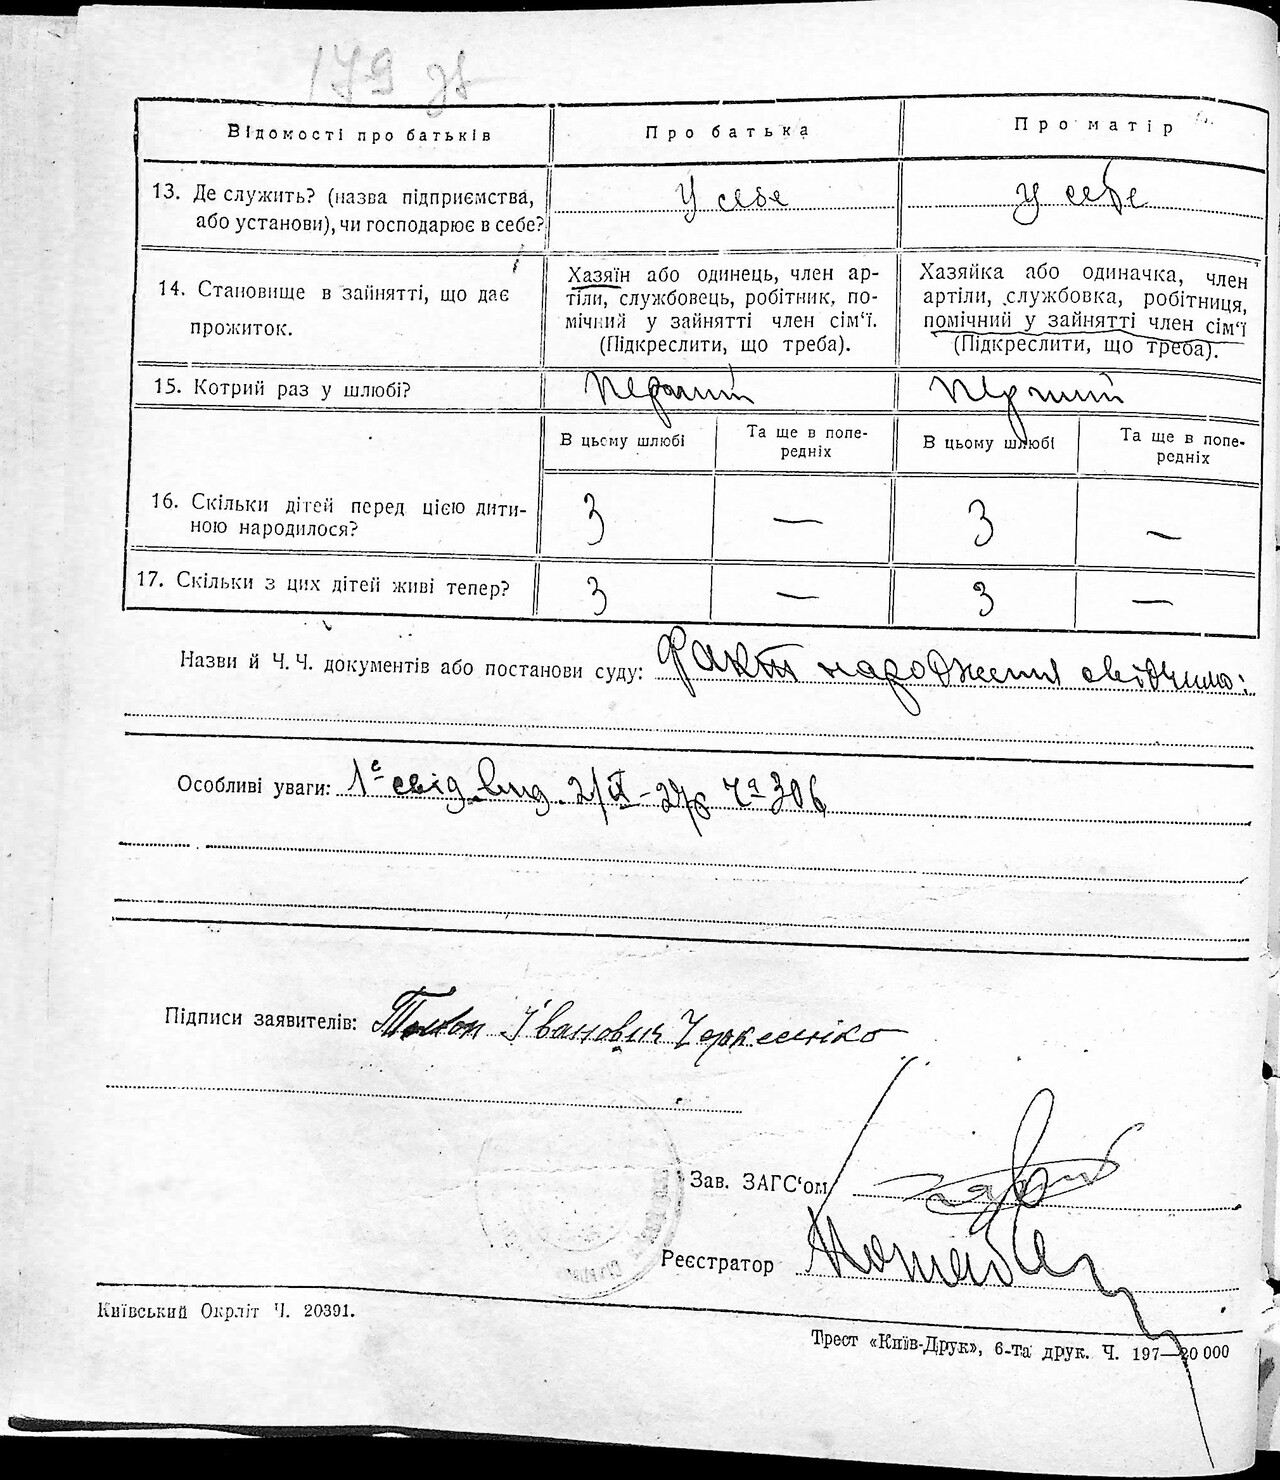 179 зв
Відомості про батьків
Про батька
Про матір
13. Де служить? (назва підприємства,
або установи), чи господарює в себе?
У себе
У себе
14. Становище в зайнятті, що дає
прожиток.
Хазяїн або одинець, член ар-
тіли, службовець, робітник, по-
мічний у зайнятті член сім'ї.
(Підкреслити, що треба).
Хазяйка або одиначка, член
артіли, службовка, робітниця,
помічний у зайнятті член сім'ї
(Підкреслити, що треба).
15. Котрий раз у шлюбі?
Перший
Перший
В цьому шлюбі
Та ще в попе-
редніх
В цьому шлюбі
Та ще в попе-
редніх
16. Скільки дітей перед цією дити-
ною народилося?
3
—
3
—
17. Скільки з цих дітей живі тепер?
3
—
3
—
Назви й Ч. Ч. документів або постанови суду: Факт народження свідчимо:
Особливі уваги: свід. вид. Ча 306
Підписи заявителів: Іванович
Зав. ЗАГС'ом
Реєстратор
Київський Окрліт Ч. 20391.
Трест «Київ-Друк», 6-та друк. Ч. 197—20 000